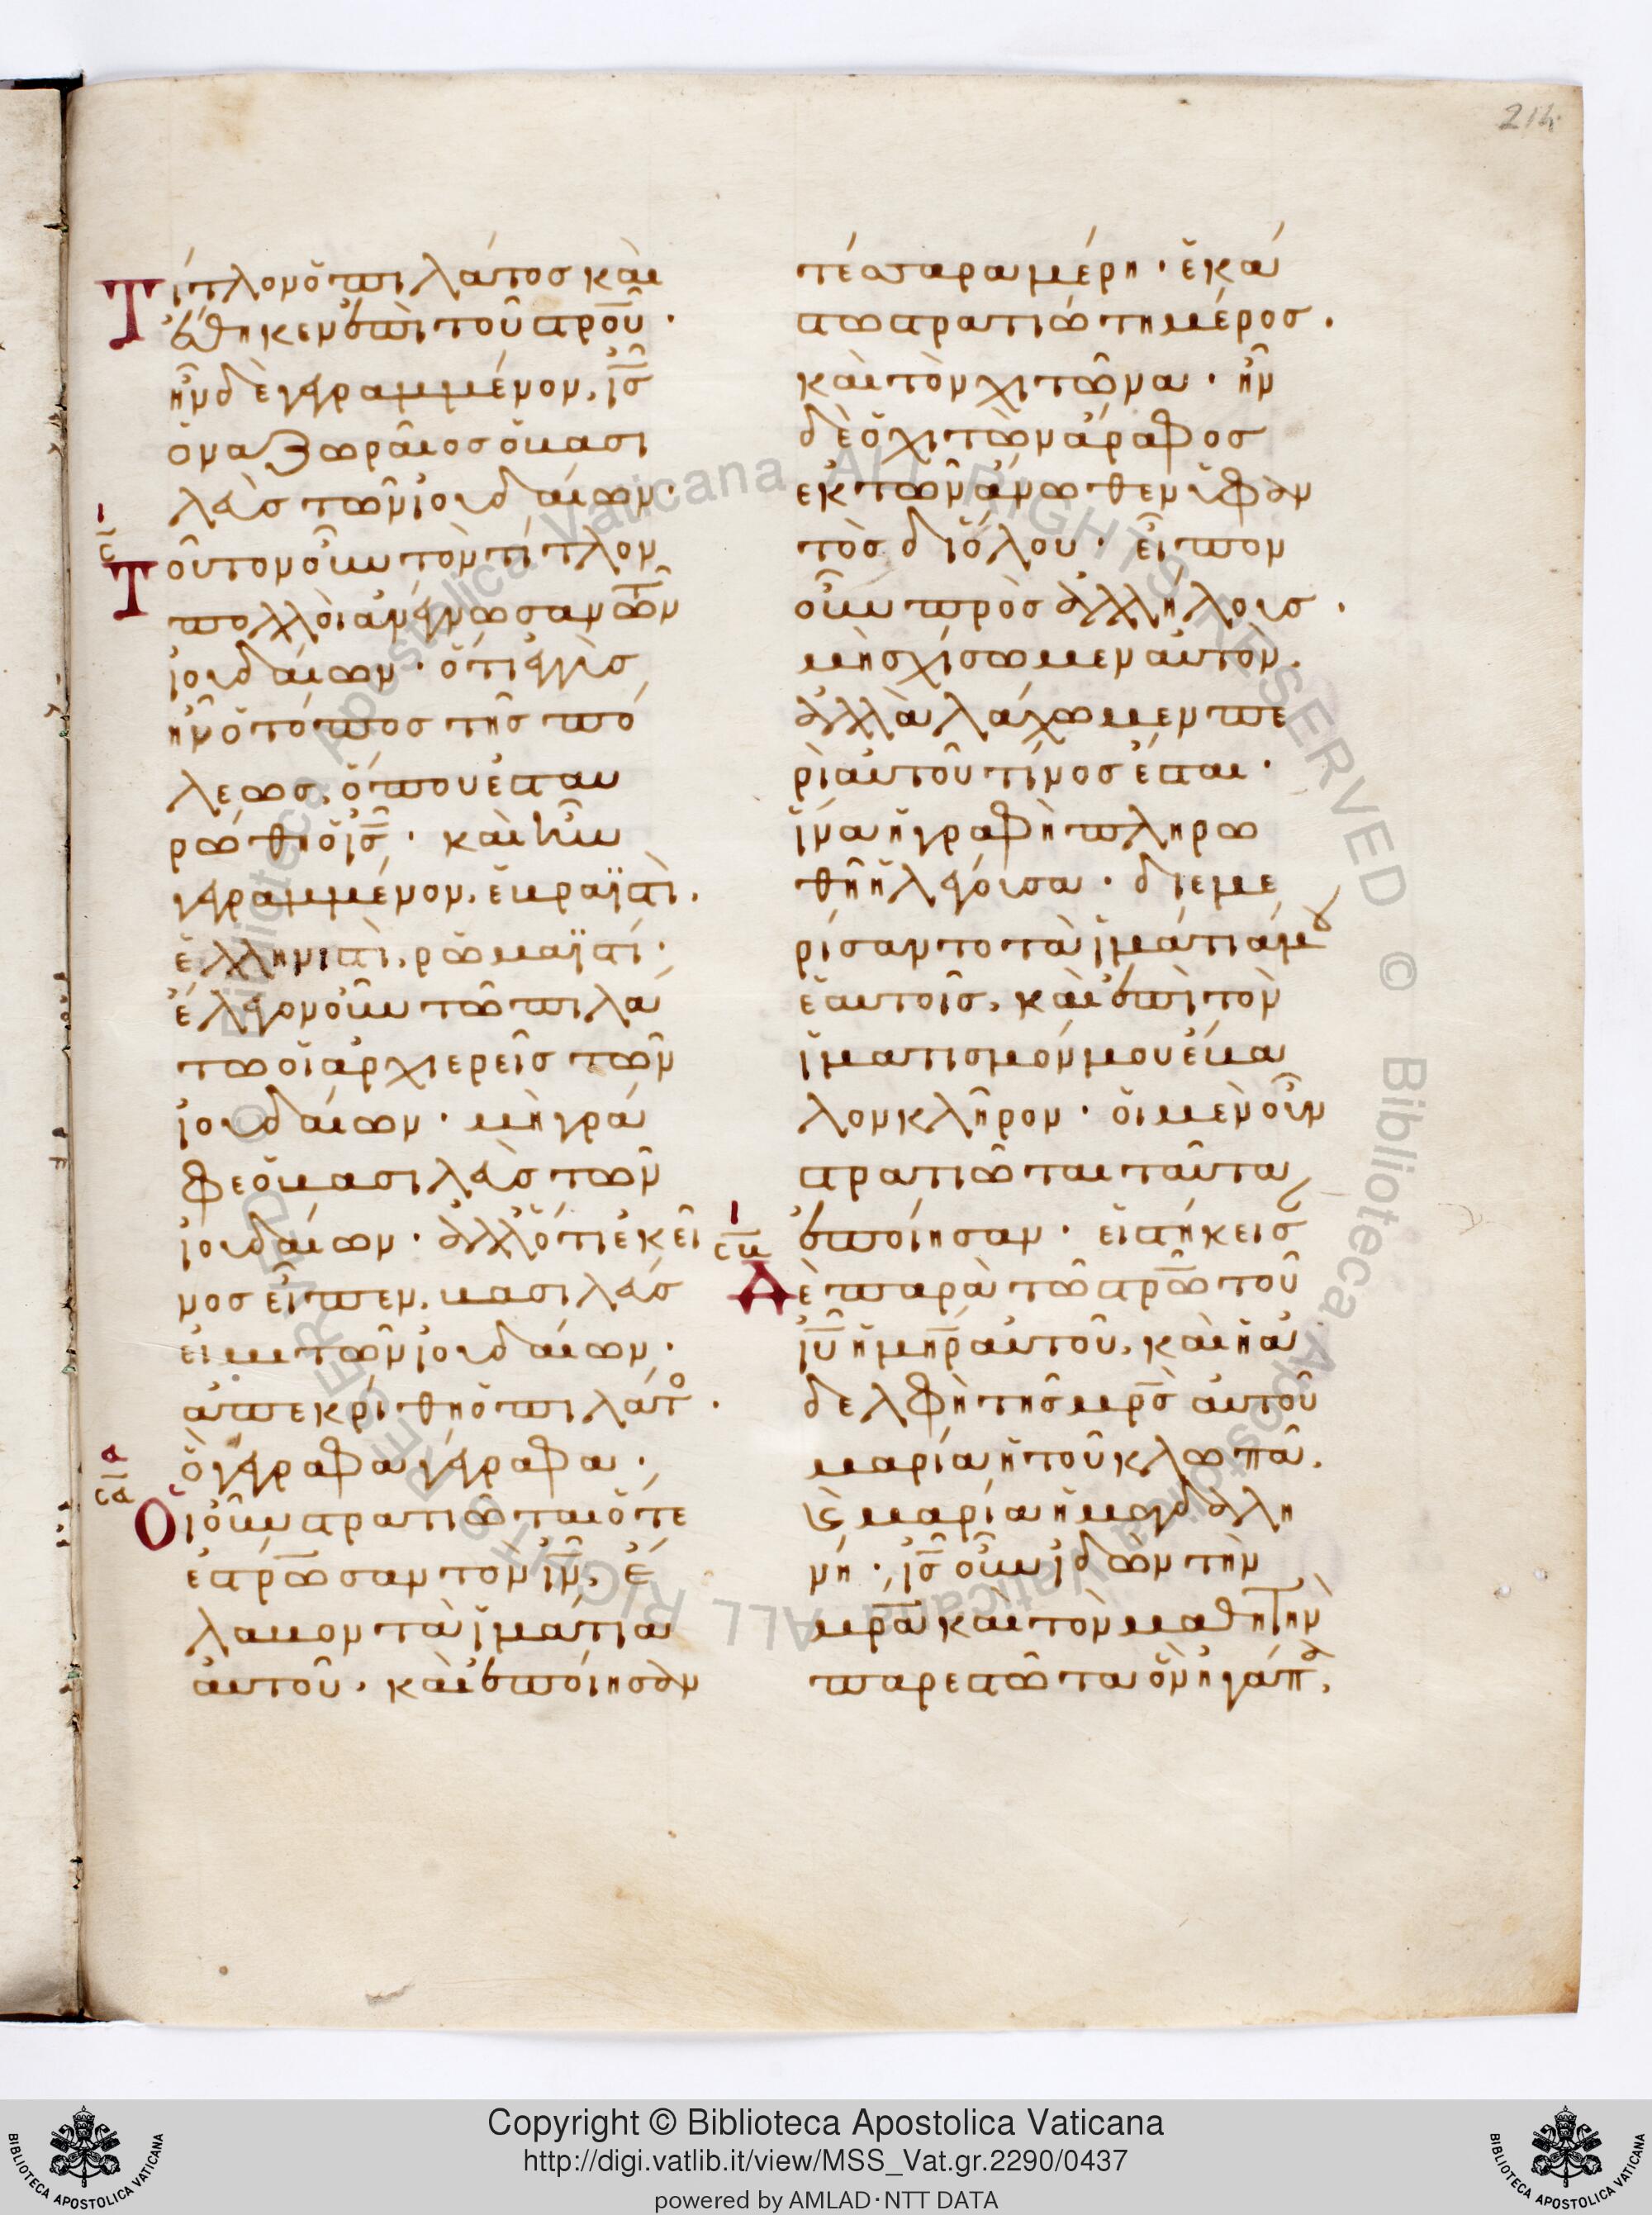 214
Τίτλον ὁ πιλάτος καὶ
ἔθηκεν ἐπὶ τοῦ στρ̅οῦ ·
ἦν δὲ γεγραμμένον, ἰ̅ς̅
ὁ ναζωραῖος ὁ βασι
λεὺς τῶν ἰουδαίων ·
Τοῦτον οὖν τὸν τίτλον
πολλοὶ ἀνέγνωσαν τῶν
ἰουδαίων · ὅτι ἐγγὺς
ἦν ὁ τόπος τῆς πό
λεως, ὅπου ἐσταυ
ρώθη ὁ ἰ̅ς̅ · καὶ ἦν
γεγραμμένον, ἑβραϊστὶ,
ἑλληνιστὶ, ῥωμαϊστί ·
ἔλεγον οὖν τῶ πιλά
τω οἱ ἀρχιερεῖς τῶν
ἰουδαίων · μὴ γρά
φε ὁ βασιλεὺς τῶν
ἰουδαίων · ἀλλ' ὅτι ἐκεῖ
νος εἶπεν, βασιλεύς
εἰμι τῶν ἰουδαίων ·
ἀπεκρίθη ὁ πιλάτο ·
ὃ γέγραφα γέγραφα ·
Οἱ οὖν στρατιῶται ὅτε
ἐστρ̅ωσαν τὸν ἰ̅ν̅, ἔ
λαβον τὰ ἱμάτια
αὐτοῦ · καὶ ἐποίησαν
τέσσαρα μέρη · ἑκά
στω στρατιώτη μέρος ·
καὶ τὸν χιτῶνα · ἦν
δὲ ὁ χιτὼν ἄραφος
ἐκ τῶν ἄνωθεν ὑφαν
τὸς δι' ὅλου · εἶπον
οὖν πρὸς ἀλλήλους ·
μὴ σχίσωμεν αὐτὸν,
ἀλλὰ λάχωμεν πε
ρὶ αὐτοῦ τίνος ἔσται ·
ἵνα ἡ γραφὴ πληρω
θῆ ἡ λέγουσα · διεμε
ρίσαντο τὰ ἱμάτιά μου
ἑαυτοῖς, καὶ ἐπὶ τὸν
ἱματισμόν μου ἔβα
λον κλῆρον · οἱ μὲν οὖν
στρατιῶται ταῦτα
ἐποίησαν · εἱστήκεισ
Δὲ παρὰ τῶ στρ̅ῶ τοῦ
ἰ̅υ̅ ἡ μη̅ρ̅ αὐτοῦ, καὶ ἡ ἀ
δελφὴ τῆς μρ̅ς̅ αὐτοῦ
μαρία ἡ τοῦ κλωπᾶ,
καὶ μαρία ἡ μαγδαλη
νή · ἰ̅ς̅ οὖν ἰδὼν τὴν
μρ̅α̅ καὶ τὸν μαθητὴν
παρεστῶτα ὃν ἠγάπα,
Copyright © Biblioteca Apostolica Vaticana
http://digi.vatlib.it/view/MSS_Vat.gr.2290/0437
powered by AMLAD·NTT DATA